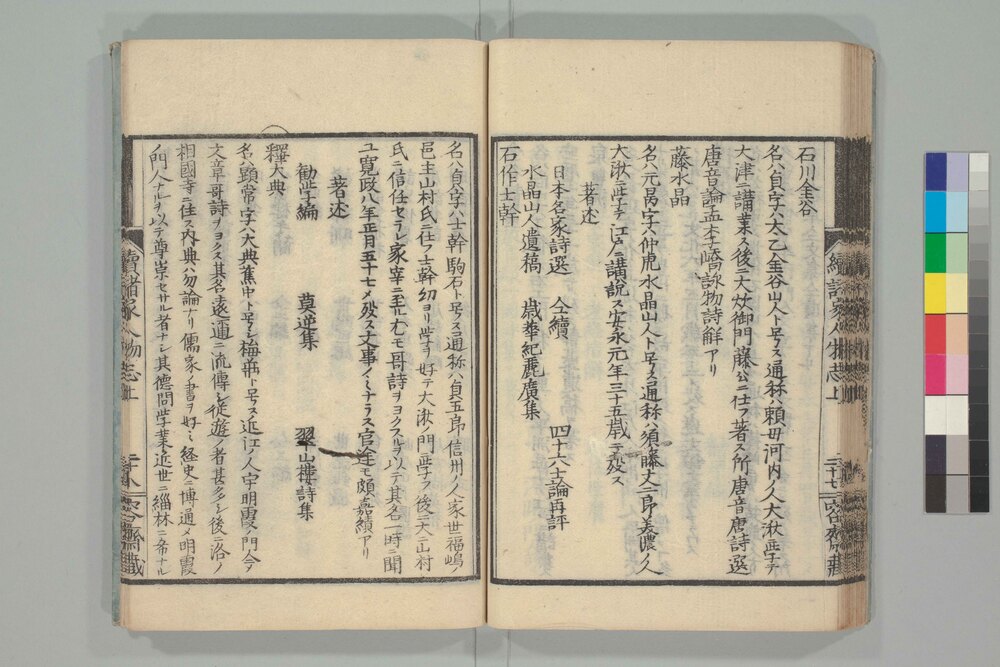 石川金谷
名ハ貞字ハ太乙金谷山人ト号ス通称ハ頼母河内ノ人大湫ニ学テ
大津ニ講業ス後ニ大炊御門藤公ニ仕フ著ス所唐音唐詩選
唐音論孟李嶠詠物詩解アリ
藤水晶
名ハ元昺字ハ仲虎水晶山人ト号ス通称ハ須藤丈二郎美濃ノ人
大湫ニ学テ江戸ニ講説ス安永元年三十五歳ニテ歿ス
著述
日本名家詩選 仝續 四十六士論再評
水晶山人遺稿 歳華紀麗廣集
石作士幹
名ハ貞字ハ士幹駒石ト号ス通称ハ貞五郎信州ノ人家世ニ福嶋ノ
邑主山村氏ニ仕フ士幹幼ヨリ学ヲ好テ大湫ノ門ニ学フ後ニ大ニ山村
氏ニ信任セラレ家宰ニ至ル尤モ哥詩ヲヨクスルヲ以テ其名一時ニ聞
ユ寛政八年正月五十七ニメ歿ス文事ノミナラス官途モ頗嘉績アリ
著述
勧学編 莫逆集 翠山樓詩集
釋大典
名ハ顕常字ハ大典蕉中ト号シ梅荘ト号ス近江ノ人宇明霞ノ門ニ入テ
文章哥詩ヲヨクス其名遠邇ニ流傳シ従遊ノ者甚多シ後ニ洛ノ
相國寺ニ住ス内典ハ勿論ナリ儒家ノ書ヲ好ミ経史ニ博通メ明霞
ノ門人ナルヲ以テ尊崇セサル者ナシ其徳問学業近世ニ緇林ニ希ナル
續諸家人物志上
二十八
容齋藏